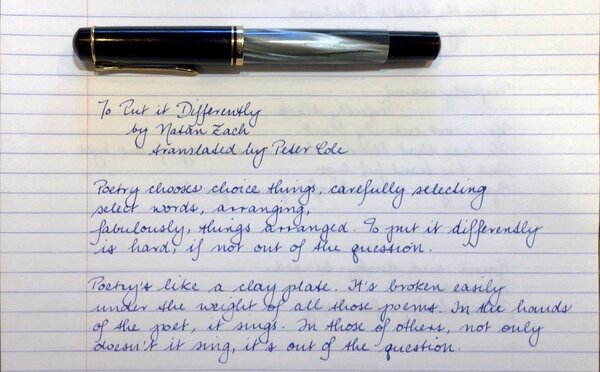 To Put it Differently
by Natan Zach
translated by Peter Cole
Poetry chooses choice things, carefully selecting
select words, arranging,
fabulously, things arranged. To put it differently
is hard, if not out of the question.
Poetry's like a clay plate. It's broken easily
under the weight of all those poems. In the hands
of the poet, it sings. In those of others, not only
doesn't it sing, it's out of the question.